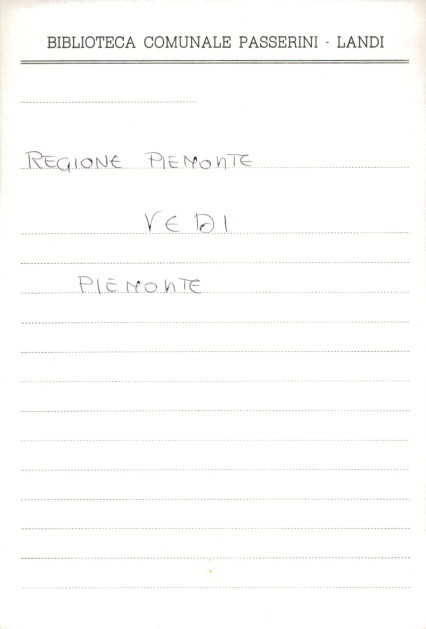 BIBLIOTECA COMUNALE PASSERINI - LANDI
REGIONE PIEMONTE
VEDI
PIEMONTE